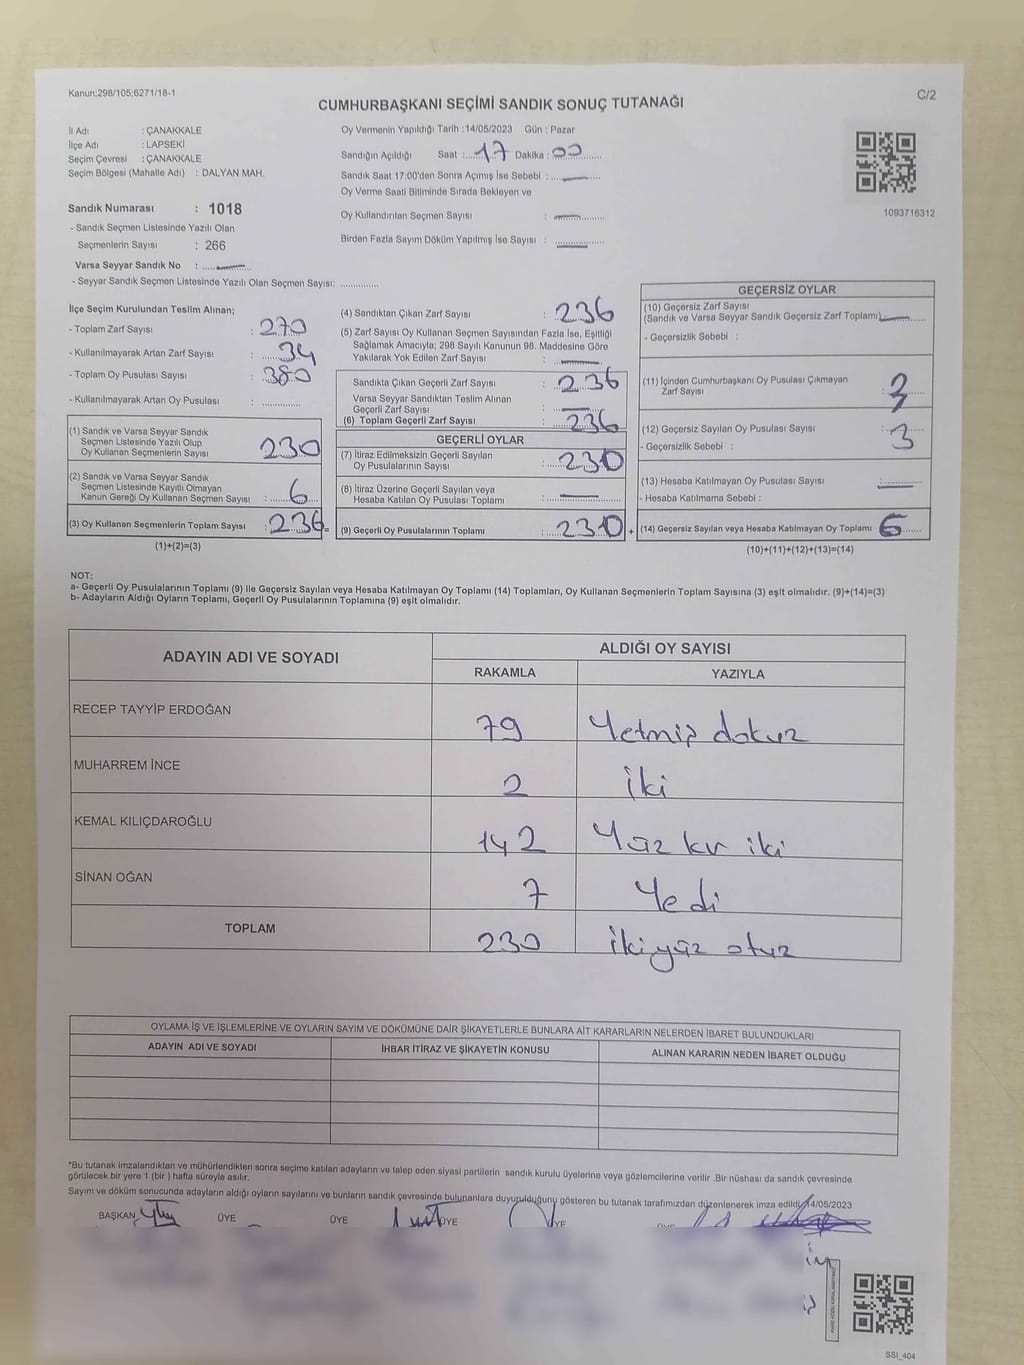 Kanun;298/105;6271/18-1
C/2
CUMHURBAŞKANI SEÇİMİ SANDIK SONUÇ TUTANAĞI
İl Adı : ÇANAKKALE
İlçe Adı : LAPSEKİ
Seçim Çevresi : ÇANAKKALE
Seçim Bölgesi (Mahalle Adı) : DALYAN MAH.
Sandık Numarası : 1018
- Sandık Seçmen Listesinde Yazılı Olan
Seçmenlerin Sayısı : 266
Varsa Seyyar Sandık No : —
- Seyyar Sandık Seçmen Listesinde Yazılı Olan Seçmen Sayısı: ..............
Oy Vermenin Yapıldığı Tarih :14/05/2023 Gün : Pazar
Sandığın Açıldığı Saat : 17 Dakika : 00
Sandık Saat 17:00'den Sonra Açımış İse Sebebi : —
Oy Verme Saati Bitiminde Sırada Bekleyen ve
Oy Kullandırılan Seçmen Sayısı : —
Birden Fazla Sayım Döküm Yapılmış İse Sayısı : —
1093716312
İlçe Seçim Kurulundan Teslim Alınan;
- Toplam Zarf Sayısı : 270
- Kullanılmayarak Artan Zarf Sayısı : 34
- Toplam Oy Pusulası Sayısı : 380
- Kullanılmayarak Artan Oy Pusulası : ..............
(1) Sandık ve Varsa Seyyar Sandık
Seçmen Listesinde Yazılı Olup
Oy Kullanan Seçmenlerin Sayısı 230
(2) Sandık ve Varsa Seyyar Sandık
Seçmen Listesinde Kayıtlı Olmayan
Kanun Gereği Oy Kullanan Seçmen Sayısı : 6
(3) Oy Kullanan Seçmenlerin Toplam Sayısı : 236 =
(1)+(2)=(3)
(4) Sandıktan Çıkan Zarf Sayısı : 236
(5) Zarf Sayısı Oy Kullanan Seçmen Sayısından Fazla İse, Eşitliği
Sağlamak Amacıyla; 298 Sayılı Kanunun 98. Maddesine Göre
Yakılarak Yok Edilen Zarf Sayısı : —
Sandıkta Çıkan Geçerli Zarf Sayısı : 236
Varsa Seyyar Sandıktan Teslim Alınan
Geçerli Zarf Sayısı : —
(6) Toplam Geçerli Zarf Sayısı : 236
GEÇERLİ OYLAR
(7) İtiraz Edilmeksizin Geçerli Sayılan
Oy Pusulalarının Sayısı : 230
(8) İtiraz Üzerine Geçerli Sayılan veya
Hesaba Katılan Oy Pusulası Toplamı : —
(9) Geçerli Oy Pusulalarının Toplamı : 230 +
GEÇERSİZ OYLAR
(10) Geçersiz Zarf Sayısı
(Sandık ve Varsa Seyyar Sandık Geçersiz Zarf Toplamı) —
- Geçersizlik Sebebi :
(11) İçinden Cumhurbaşkanı Oy Pusulası Çıkmayan
Zarf Sayısı 3
(12) Geçersiz Sayılan Oy Pusulası Sayısı : 3
- Geçersizlik Sebebi :
(13) Hesaba Katılmayan Oy Pusulası Sayısı : —
- Hesaba Katılmama Sebebi :
(14) Geçersiz Sayılan veya Hesaba Katılmayan Oy Toplamı 6
(10)+(11)+(12)+(13)=(14)
NOT:
a- Geçerli Oy Pusulalarının Toplamı (9) ile Geçersiz Sayılan veya Hesaba Katılmayan Oy Toplamı (14) Toplamları, Oy Kullanan Seçmenlerin Toplam Sayısına (3) eşit olmalıdır. (9)+(14)=(3)
b- Adayların Aldığı Oyların Toplamı, Geçerli Oy Pusulalarının Toplamına (9) eşit olmalıdır.
ADAYIN ADI VE SOYADI ALDIĞI OY SAYISI
RAKAMLA YAZIYLA
RECEP TAYYİP ERDOĞAN 79 Yetmiş dokuz
MUHARREM İNCE 2 iki
KEMAL KILIÇDAROĞLU 142 Yüz kr iki
SİNAN OĞAN 7 Yedi
TOPLAM 230 İkiyüz otuz
OYLAMA İŞ VE İŞLEMLERİNE VE OYLARIN SAYIM VE DÖKÜMÜNE DAİR ŞİKAYETLERLE BUNLARA AİT KARARLARIN NELERDEN İBARET BULUNDUKLARI
ADAYIN ADI VE SOYADI İHBAR İTİRAZ VE ŞİKAYETİN KONUSU ALINAN KARARIN NEDEN İBARET OLDUĞU
*Bu tutanak imzalandıktan ve mühürlendikten sonra seçime katılan adayların ve talep eden siyasi partilerin sandık kurulu üyelerine veya gözlemcilerine verilir .Bir nüshası da sandık çevresinde
görülecek bir yere 1 (bir ) hafta süreyle asılır.
Sayım ve döküm sonucunda adayların aldığı oyların sayılarını ve bunların sandık çevresinde bulunanlara duyurulduğunu gösteren bu tutanak tarafımızdan düzenlenerek imza edildi. 14/05/2023
BAŞKAN ÜYE ÜYE ÜYE
SSI_404